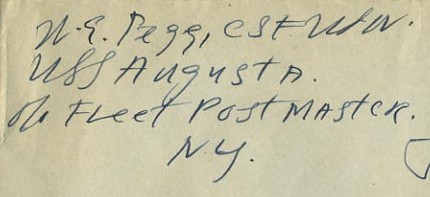 N.E. Pegg, CSF USN.
USS Augusta.
c/o Fleet Postmaster.
N.Y.